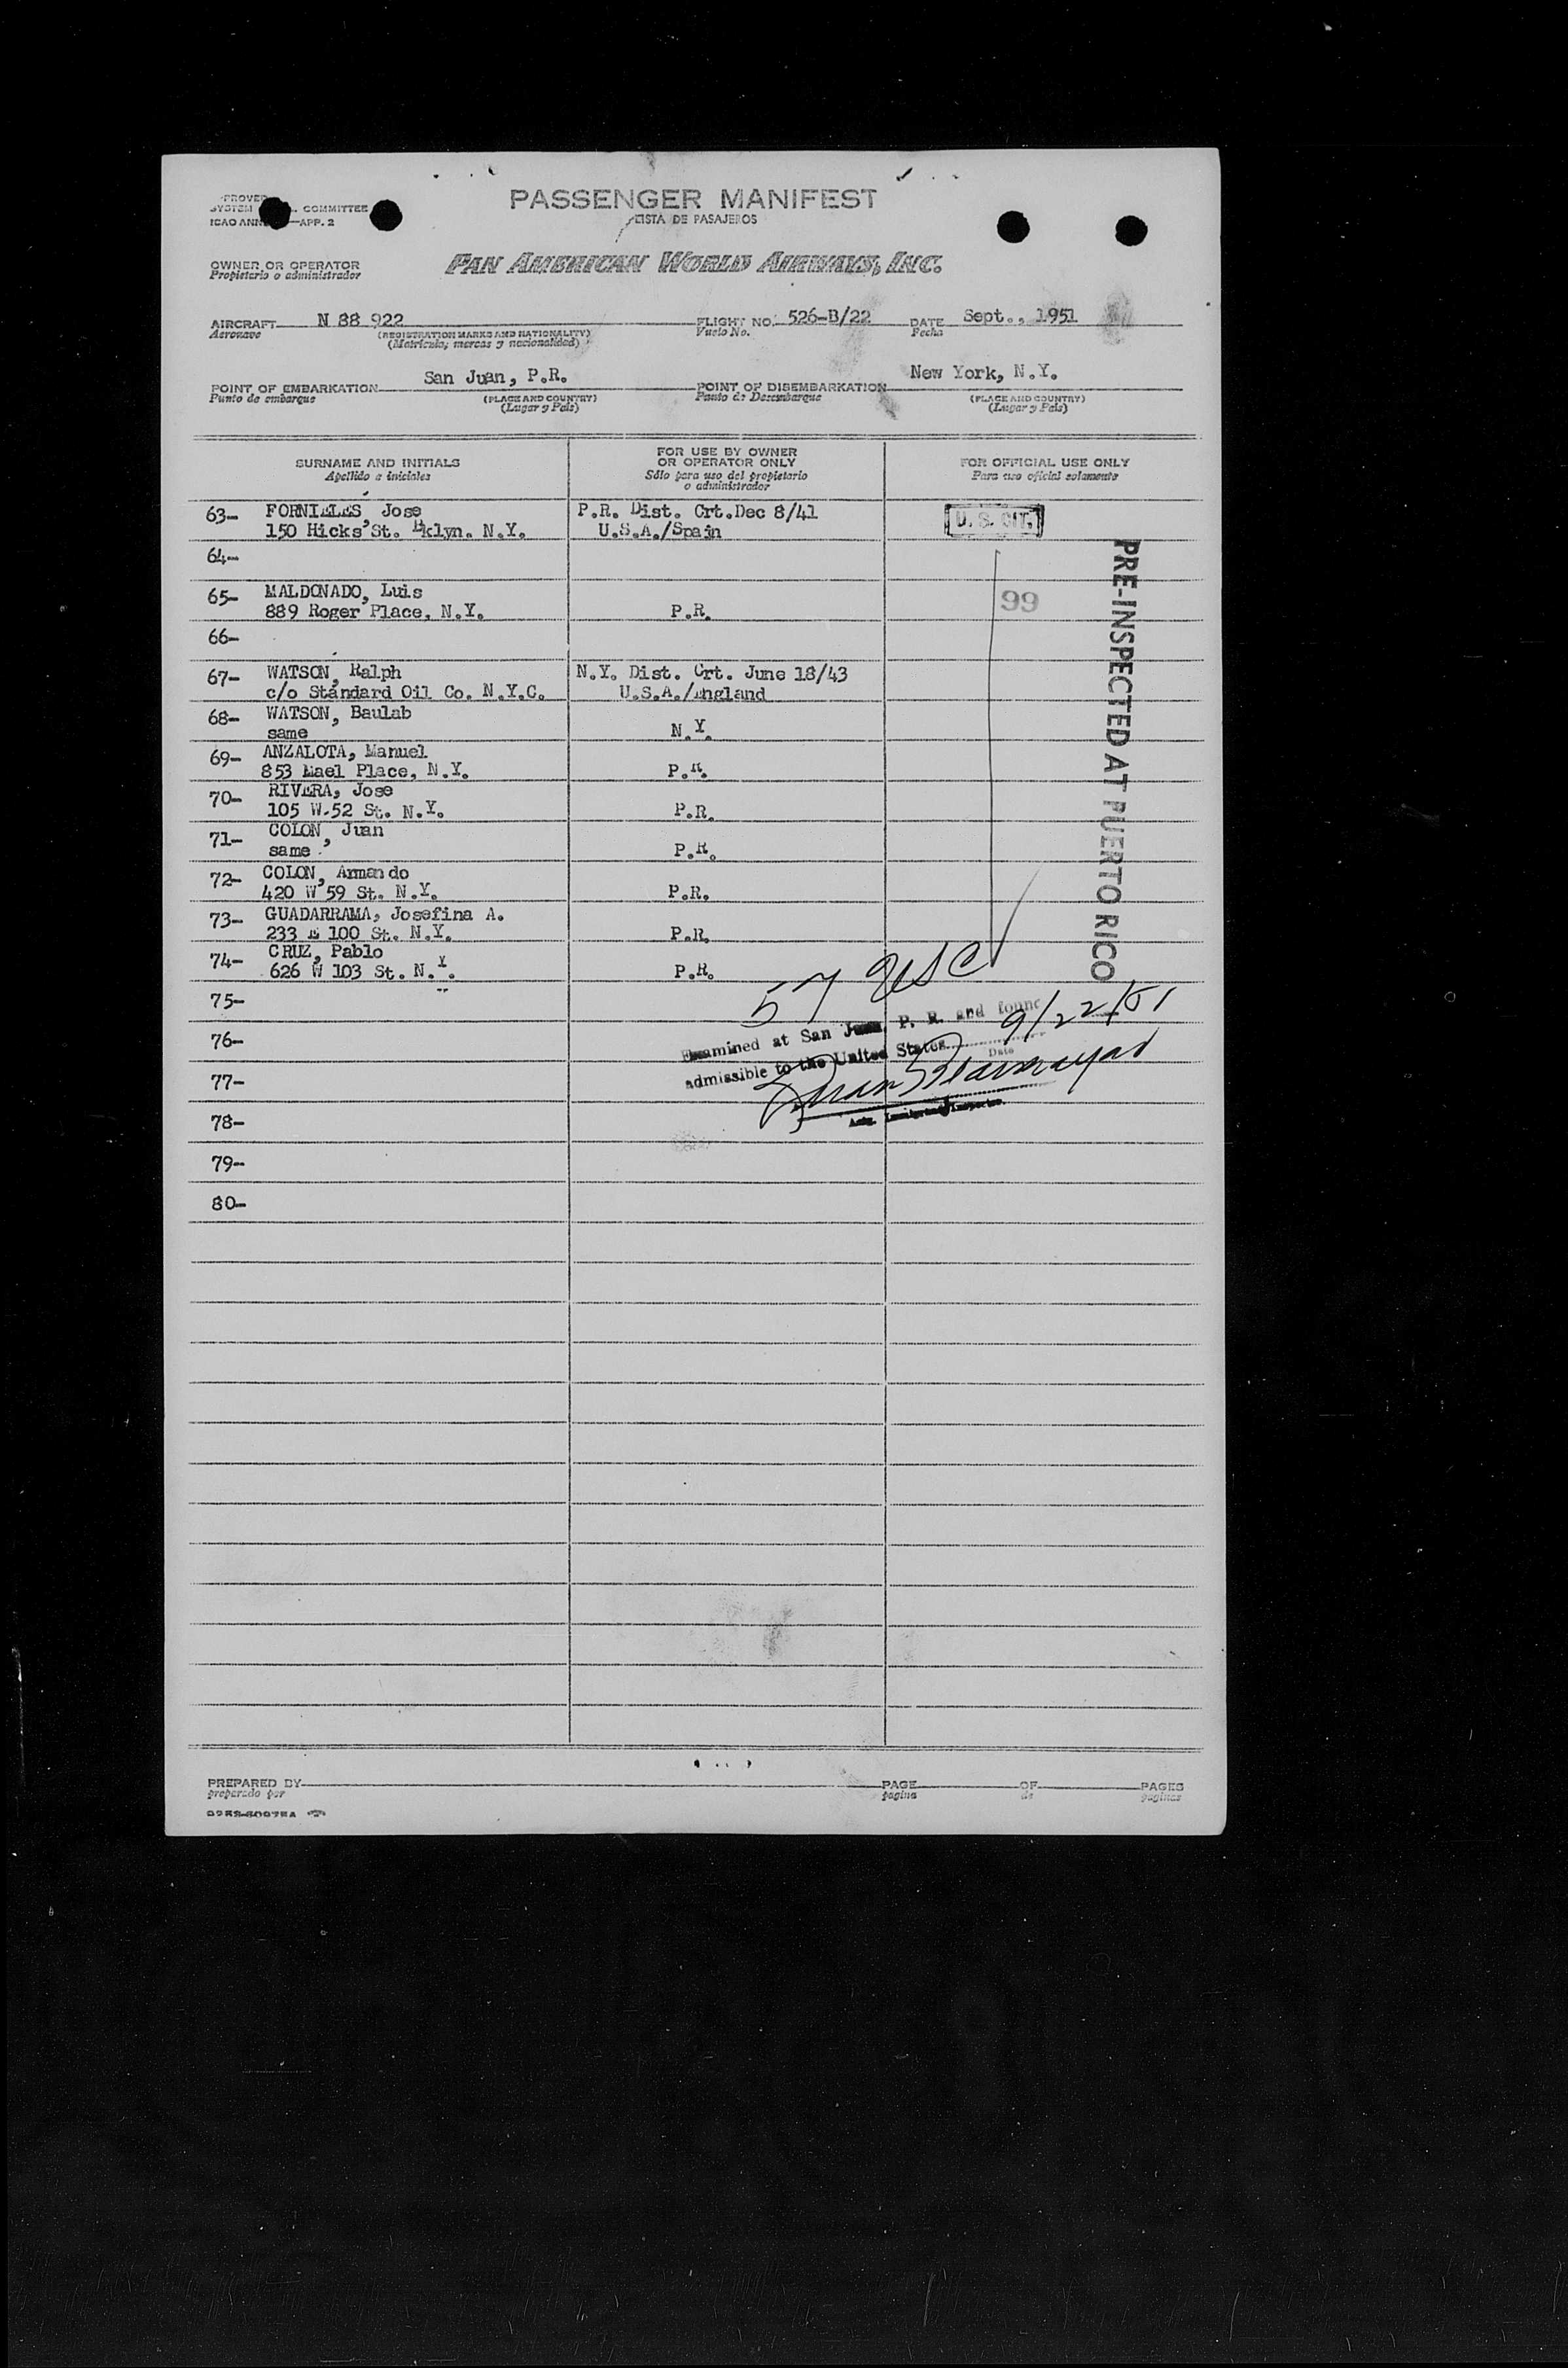 PASSENGER MANIFEST
LISTA DE PASAJEROS
COMMITTEE
APP. 2
OWNER OR OPERATOR
Propietario o administrador
PAN AMERICAN WORLD AIRWAYS, INC.
AIRCRAFT N 88 922 FLIGHT NO. 526-B/22 DATE Sept., 1951
Aeronave (REGISTRATION MARKS AND NATIONALITY) Vuelo No. Fecha
(Matricula, marcas y nacionalidad)
POINT OF EMBARKATION San Juan, P.R. POINT OF DISEMBARKATION New York, N.Y.
Punto de embarque (PLACE AND COUNTRY) Punto de Desembarque (PLACE AND COUNTRY)
(Lugar y País) (Lugar y País)
SURNAME AND INITIALS
Apellido e iniciales
FOR USE BY OWNER
OR OPERATOR ONLY
Sólo para uso del propietario
o administrador
FOR OFFICIAL USE ONLY
Para uso oficial solamente
63- FORNIELES, Jose P.R. Dist. Crt.Dec 8/41 U.S. CIT.
150 Hicks St. Bklyn. N.Y. U.S.A./Spain
64-
65- MALDONADO, Luis
889 Roger Place, N.Y. P.R. 99
66-
67- WATSON, Ralph N.Y. Dist. Crt. June 18/43
c/o Standard Oil Co. N.Y.C. U.S.A./England
68- WATSON, Baulab
same N.Y.
69- ANZALOTA, Manuel
853 Mael Place, N.Y. P.R.
70- RIVERA, Jose
105 W.52 St. N.Y. P.R.
71- COLON, Juan
same P.R.
72- COLON, Armando
420 W 59 St. N.Y. P.R.
73- GUADARRAMA, Josefina A.
233 E 100 St. N.Y. P.R.
74- CRUZ, Pablo
626 W 103 St. N.Y. P.R.
PRE-INSPECTED AT PUERTO RICO
57 USC
75-
76-
77-
78-
79-
80-
Examined at San Juan, P. R. and found
admissible to the United States 9/22/51
Date
PREPARED BY PAGE OF PAGES
preparado por pagina de paginas